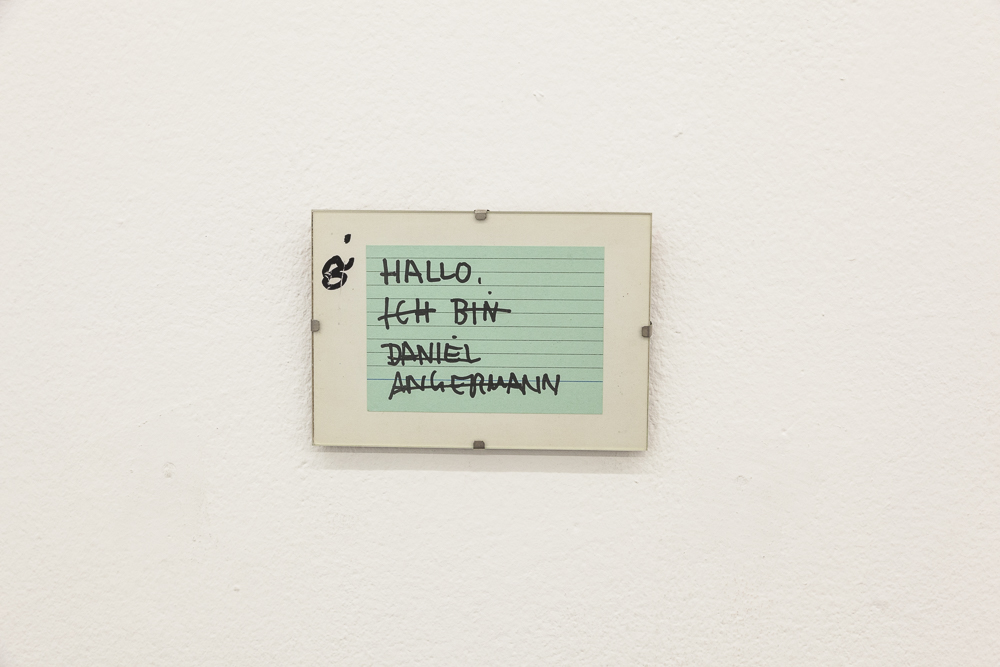 HALLO.
ICH BIN
DANIEL
ANGERMANN